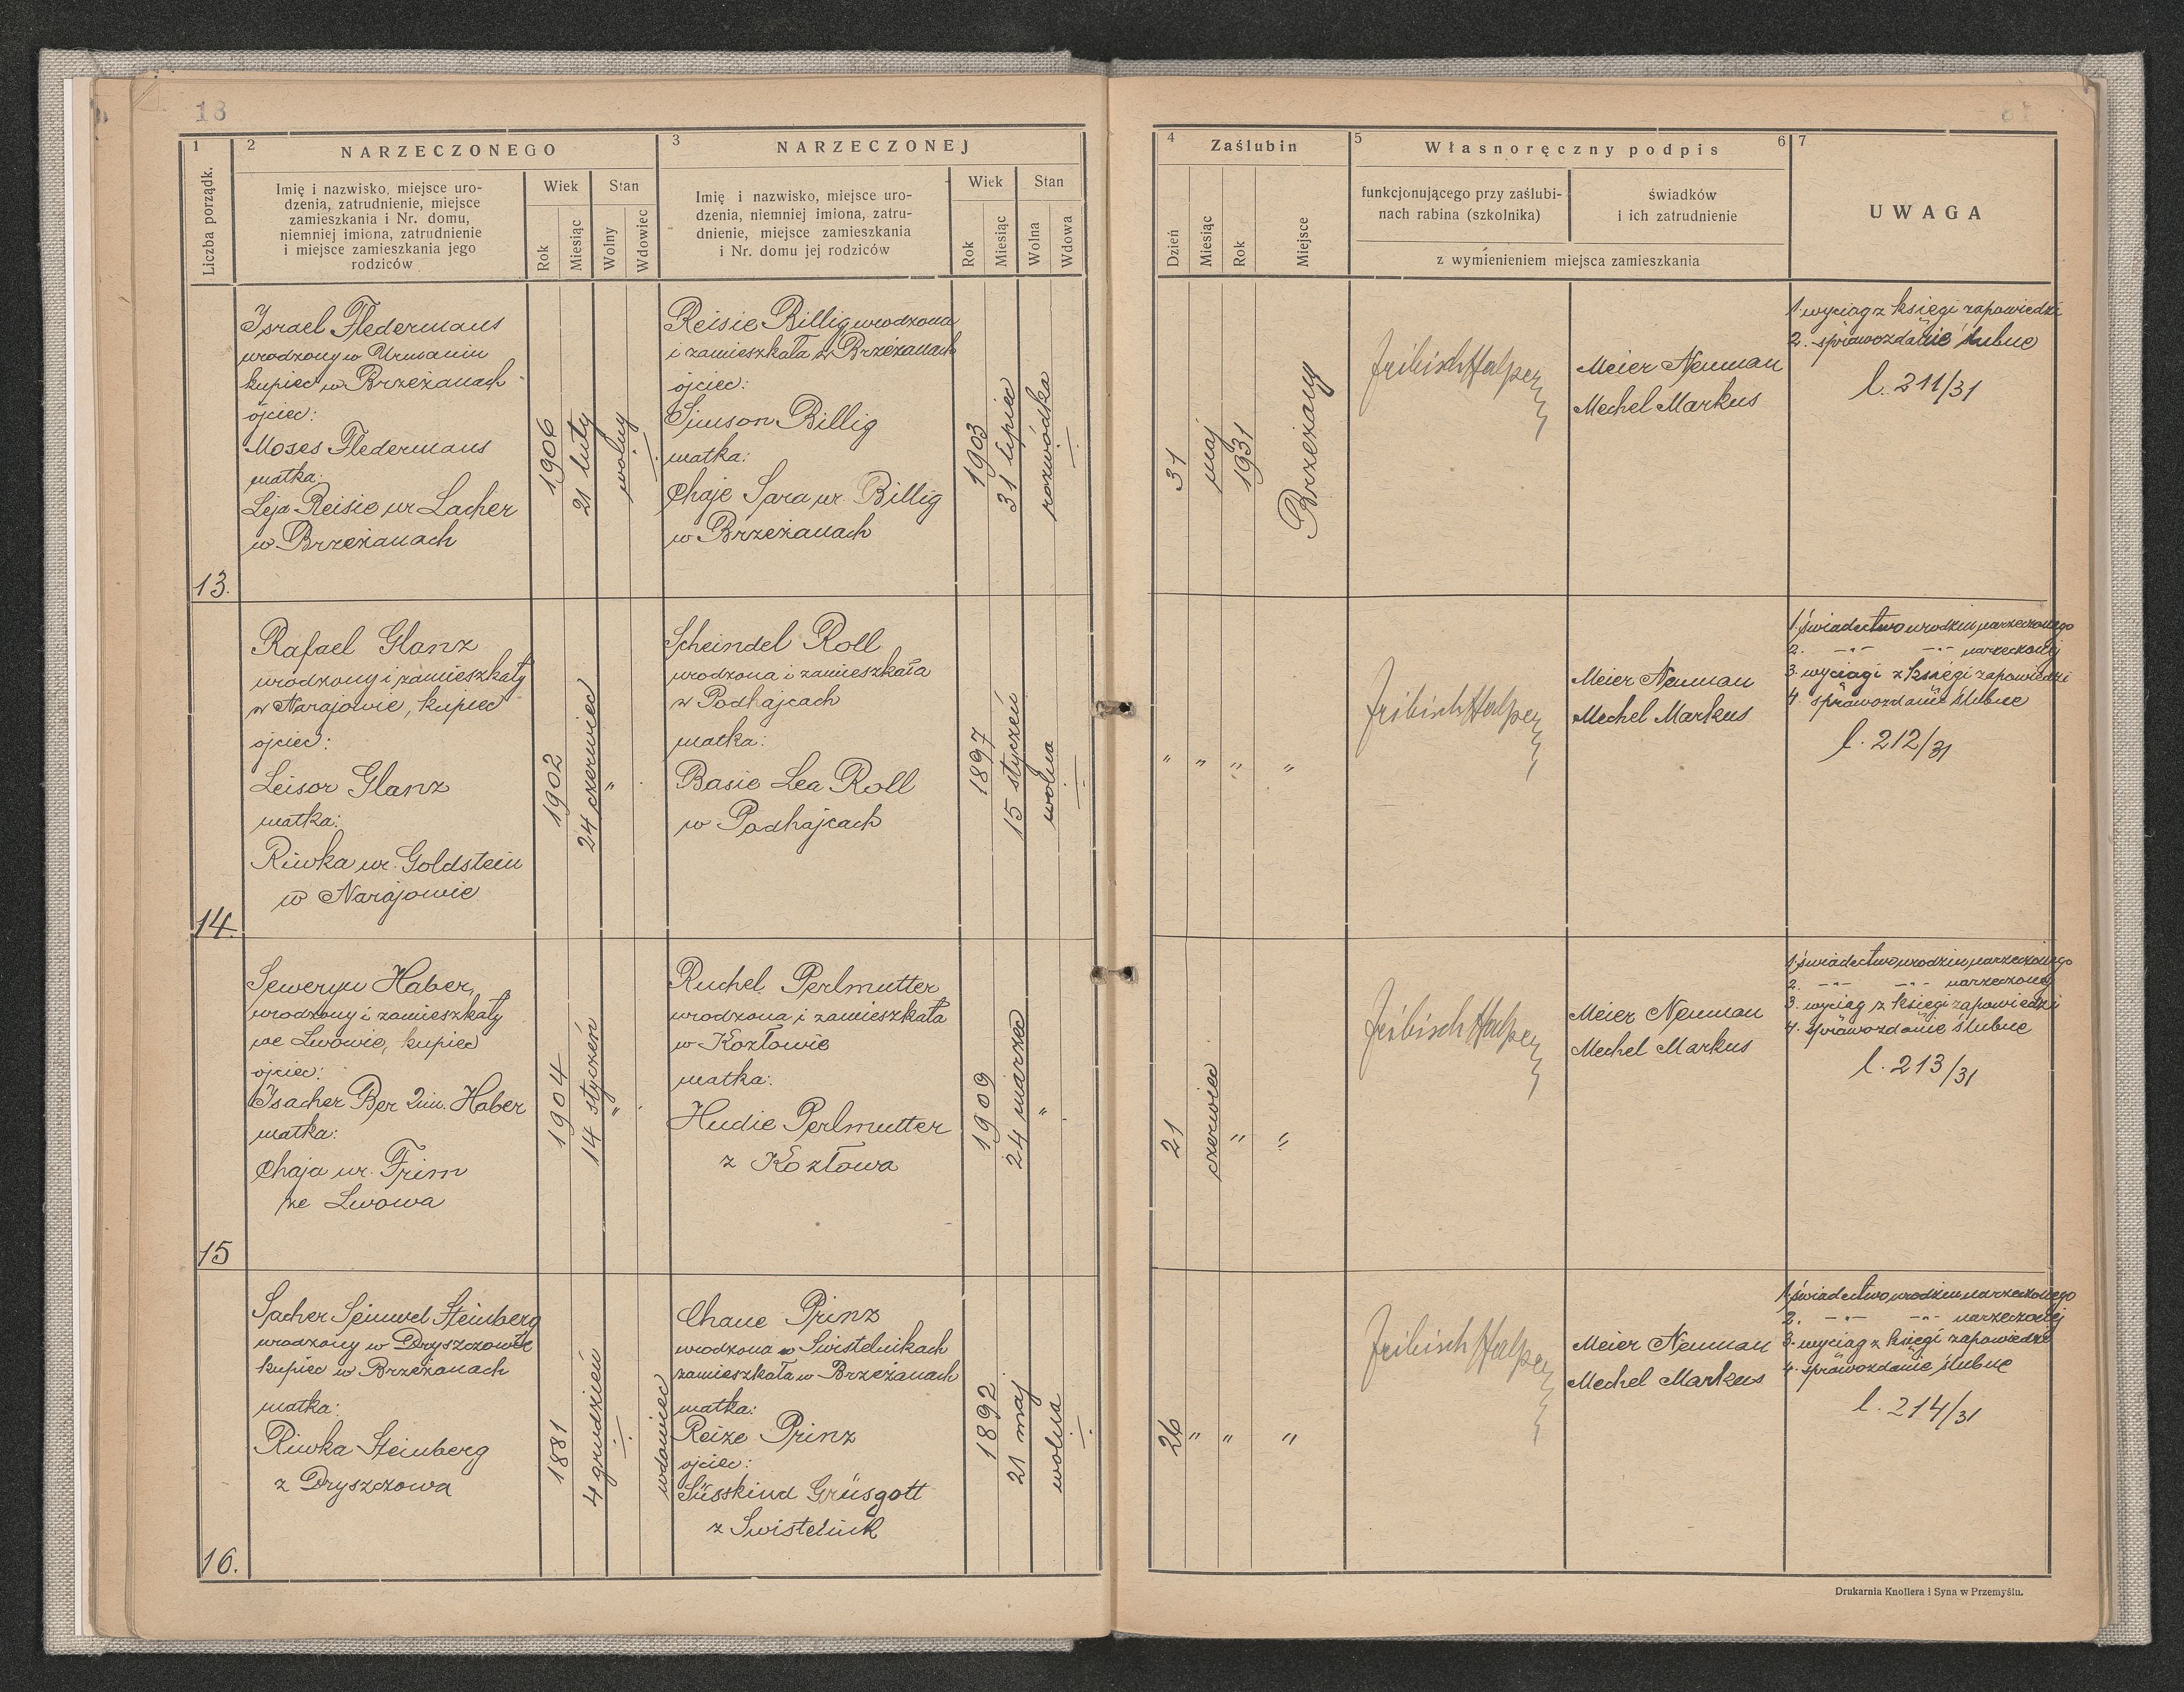 18
1
Liczba porządk.
2
NARZECZONEGO
Imię i nazwisko, miejsce uro-
dzenia, zatrudnienie, miejsce
zamieszkania i Nr. domu,
niemniej imiona, zatrudnienie
i miejsce zamieszkania jego
rodziców
Wiek
Rok
Miesiąc
Stan
Wolny
Wdowiec
3
NARZECZONEJ
Imię i nazwisko, miejsce uro-
dzenia, niemniej imiona, zatru-
dnienie, miejsce zamieszkania
i Nr. domu jej rodziców
Wiek
Rok
Miesiąc
Stan
Wolna
Wdowa
4
Zaślubin
Dzień
Miesiąc
Rok
Miejsce
5
Własnoręczny podpis
6
funkcjonującego przy zaślubi-
nach rabina (szkolnika)
świadków
i ich zatrudnienie
z wymienieniem miejsca zamieszkania
7
UWAGA
13.
Israel Fledermaus
urodzony w Urmaniu
kupiec w Brzeżanach
ojciec:
Moses Fledermaus
matka:
Leja Reisie ur Lacher
w Brzeżanach
1906
21 luty
wolny
Reisie Billig urodzona
i zamieszkała w Brzeżanach
ojciec:
Simson Billig
matka:
Chaje Sara ur. Billig
w Brzeżanach
1903
31 lipiec
rozwódka
31
maj
1931
Brzeżany
Feibisch Halpern
Meier Neuman
Mechel Markus
1. wyciąg z księgi zapowiedzi
2. sprawozdanie ślubne
l. 211/31
14.
Rafael Glanz
urodzony i zamieszkały
w Narajowie, kupiec
ojciec:
Leisor Glanz
matka:
Riwka ur. Goldstein
w Narajowie
1902
24 czerwiec
"
Scheindel Roll
urodzona i zamieszkała
w Podhajcach
matka:
Basie Lea Roll
w Podhajcach
1897
15 styczeń
wolna
" " " "
Feibisch Halpern
Meier Neuman
Mechel Markus
1. świadectwo urodzin narzeczonego
2. -"- -"- narzeczonej
3. wyciągi z księgi zapowiedzi
4. sprawozdanie ślubne
l. 212/31
15
Seweryn Haber,
urodzony i zamieszkały
we Lwowie, kupiec
ojciec:
Isacher Ber 2im. Haber
matka:
Chaja ur. Frim
ze Lwowa
1904
14 styczeń
"
Ruchel Perlmutter
urodzona i zamieszkała
w Kozłowie
matka:
Hudie Perlmutter
z Kozłowa
1909
24 marzec
"
21
czerwiec
" "
Feibisch Halpern
Meier Neuman
Mechel Markus
1. świadectwo urodzin narzeczonego
2. -"- -"- narzeczonej
3. wyciąg z księgi zapowiedzi
4. sprawozdanie ślubne
l. 213/31
16.
Sacher Semwel Steinberg
urodzony w Dryszczowie
kupiec w Brzeżanach
matka:
Riwka Steinberg
z Dryszczowa
1881
4 grudzień
wdowiec
Chane Prinz
urodzona w Swistelnikach
zamieszkała w Brzeżanach
matka:
Reize Prinz
ojciec:
Süsskind Grüsgott
z Swistelnik
1892
21 maj
wolna
26
" " "
Feibisch Halpern
Meier Neuman
Mechel Markus
1. świadectwo urodzin narzeczonego
2. -"- -"- narzeczonej
3. wyciąg z księgi zapowiedzi
4. sprawozdanie ślubne
l. 214/31
Drukarnia Knollera i Syna w Przemyślu.